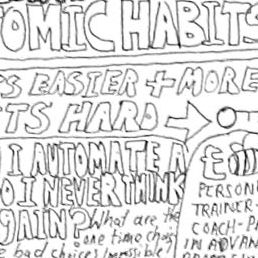 OMIC HABITS
S EASIER + MORE
TS HARD →
I AUTOMATE A
O I NEVER THINK
GAIN?
What are the
one time choi
bad choices impossible!
£
PERSON
TRAINER-
COACH-P
IN ADVAN